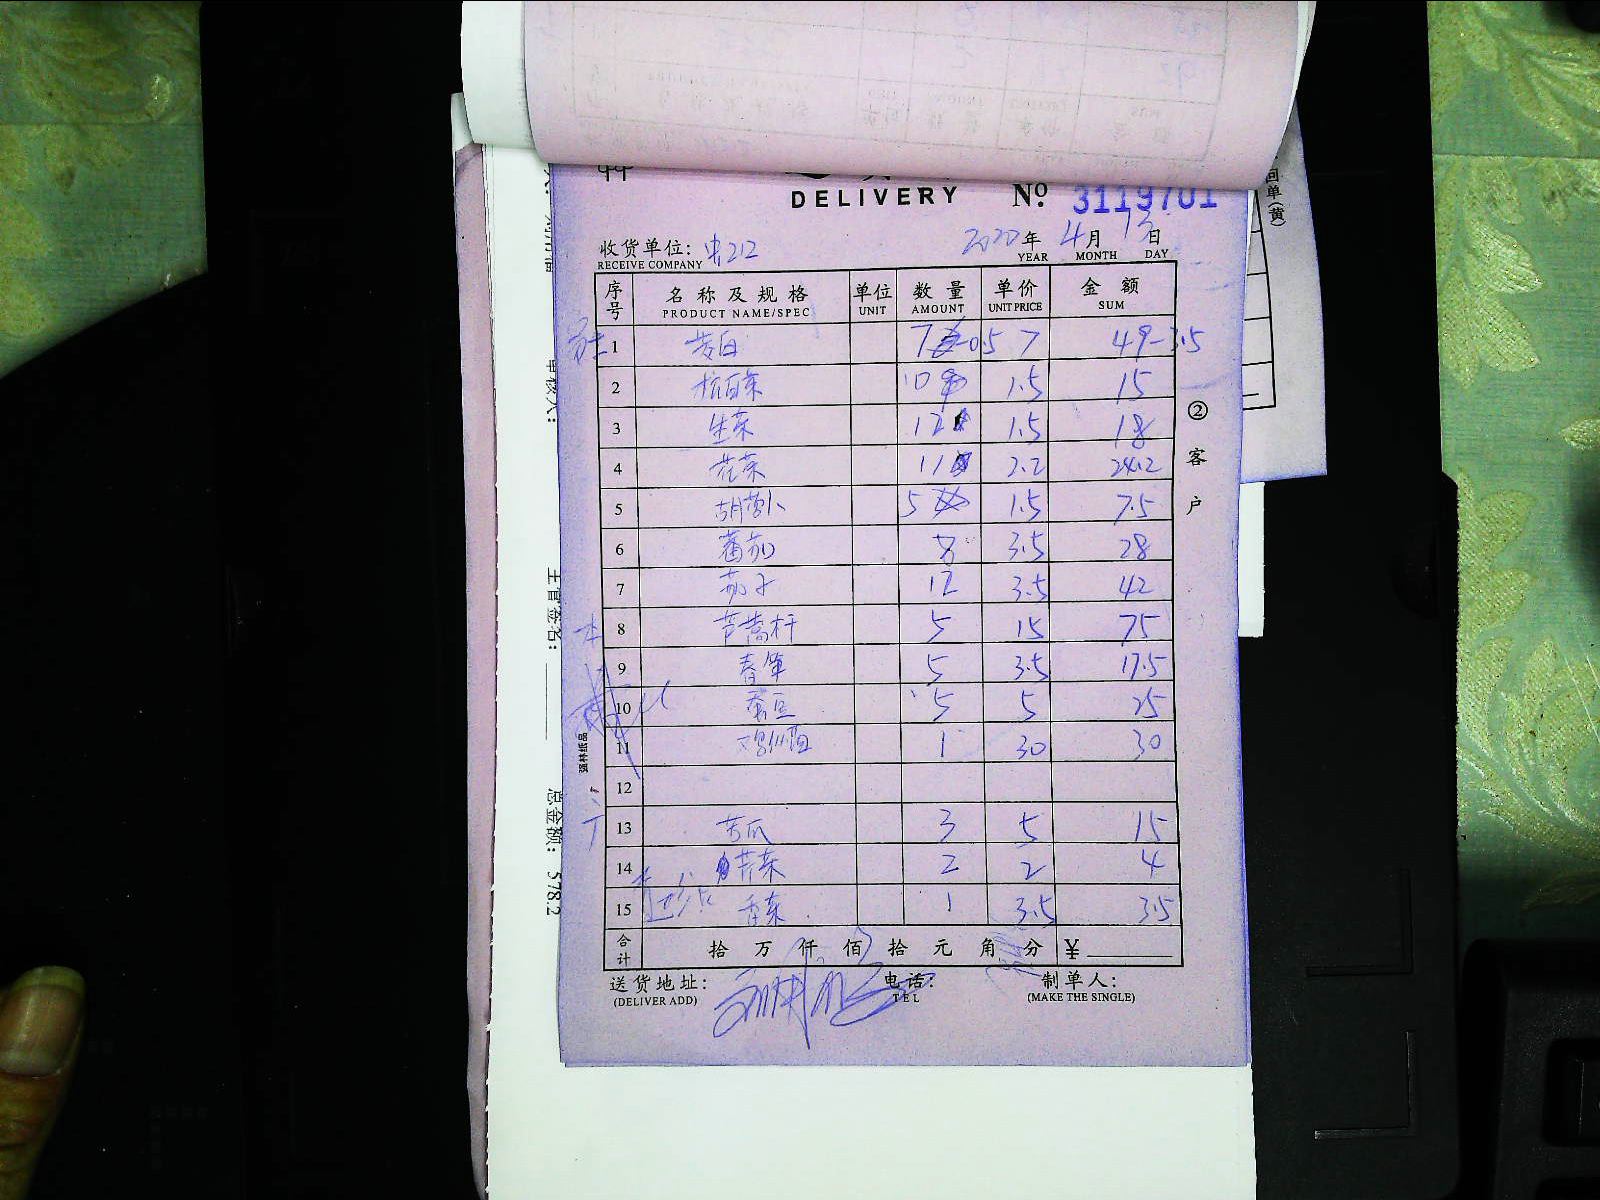 DELIVERY Nº 3119701
收货单位: 2020年 4月 13日
RECEIVE COMPANY YEAR MONTH DAY
序号 名称及规格 单位 数量 单价 金额
PRODUCT NAME/SPEC UNIT AMOUNT UNIT PRICE SUM
1 茭白 7 -0.5 7 49-3.5
2 杭白菜 10 1.5 15
3 生菜 12 1.5 18
4 花菜 11 2.2 24.2
5 胡萝卜 5 1.5 7.5
6 蕃茄 8 3.5 28
7 茄子 12 3.5 42
8 芦蒿杆 5 15 75
9 春笋 5 3.5 17.5
10 蚕豆 5 5 25
11 1 30 30
12
13 冬瓜 3 5 15
14 芹菜 2 2 4
15 香菜 1 3.5 3.5
合计 拾 万 仟 佰 拾 元 角 分 ¥
送货地址: 电话: 制单人:
(DELIVER ADD) TEL (MAKE THE SINGLE)
②客户
强林纸品
回单(黄)
审核人:
主管签名:
总金额: 578.2